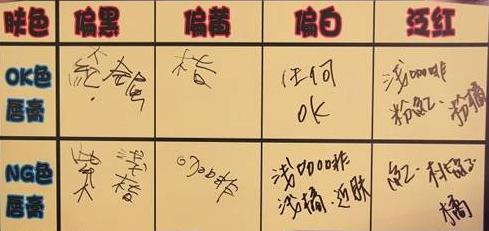 肤色 偏黑 偏黄 偏白 泛红
OK色唇膏 红. 金属 桔 任何OK 浅咖啡 粉红. 粉橘
NG色唇膏 紫 浅桔 咖啡 浅咖啡 浅橘. 近肤 红. 桃红. 橘